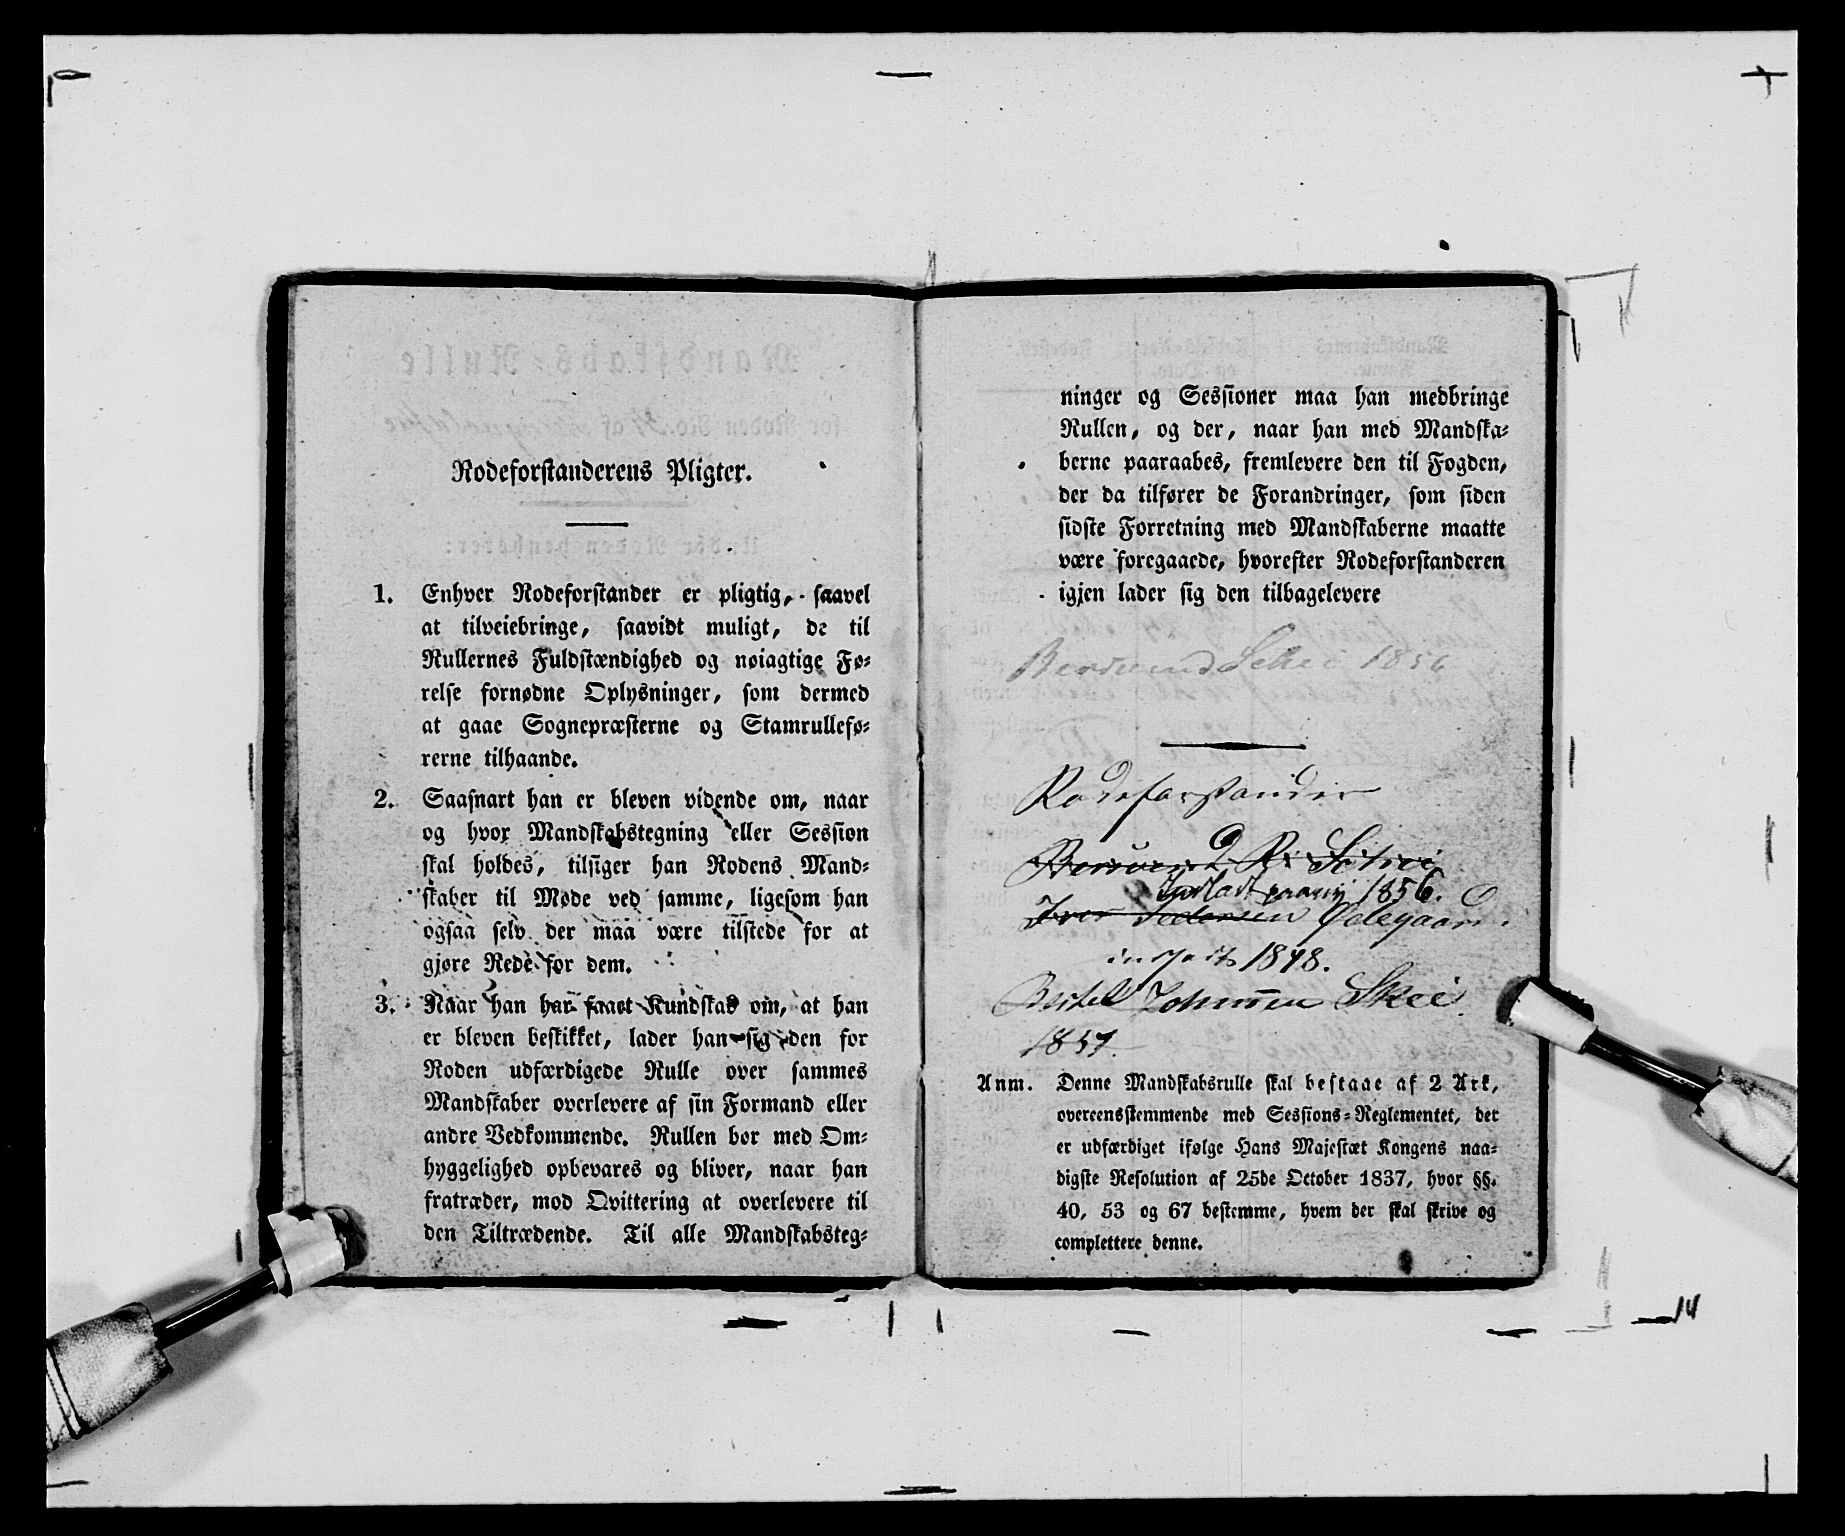 Rodeforstanderens Pligter.
1. Enhver Rodeforstander er pligtig, saavel
at tilveiebringe, saavidt muligt, de til
Rullernes Fuldstændighed og nøiagtige Fø-
relse fornødne Oplysninger, som dermed
at gaae Sognepræsterne og Stamrullefø-
rerne tilhaande.
2. Saasnart han er bleven vidende om, naar
og hvor Mandskabstegning eller Session
skal holdes, tilsiger han Rodens Mand-
skaber til Møde ved samme, ligesom han
ogsaa selv der maa være tilstede for at
gjøre Rede for dem.
3. Naar han har faaet Kundskab om, at han
er bleven beskikket, lader han sig den for
Roden udfærdigede Rulle over sammes
Mandskaber overlevere af sin Formand eller
andre Vedkommende. Rullen bør med Om-
hyggelighed opbevares og bliver, naar han
fratræder, mod Qvittering at overlevere til
den Tiltrædende. Til alle Mandskabsteg-
ninger og Sessioner maa han medbringe
Rullen, og der, naar han med Mandska-
berne paaraabes, fremlevere den til Fogden,
der da tilfører de Forandringer, som siden
sidste Forretning med Mandskaberne maatte
være foregaaede, hvorefter Rodeforstanderen
igjen lader sig den tilbagelevere
1856
Rodeforstander
1856.
Iver Pedersen Ødegaard.
1848.
Bertel Johnsen Skei
1857.
Anm. Denne Mandskabsrulle skal bestaae af 2 Ark,
overeensstemmende med Sessions-Reglementet, der
er udfærdiget ifølge Hans Majestæt Kongens naa-
digste Resolution af 25de October 1837, hvor §§.
40, 53 og 67 bestemme, hvem der skal skrive og
complettere denne.
14